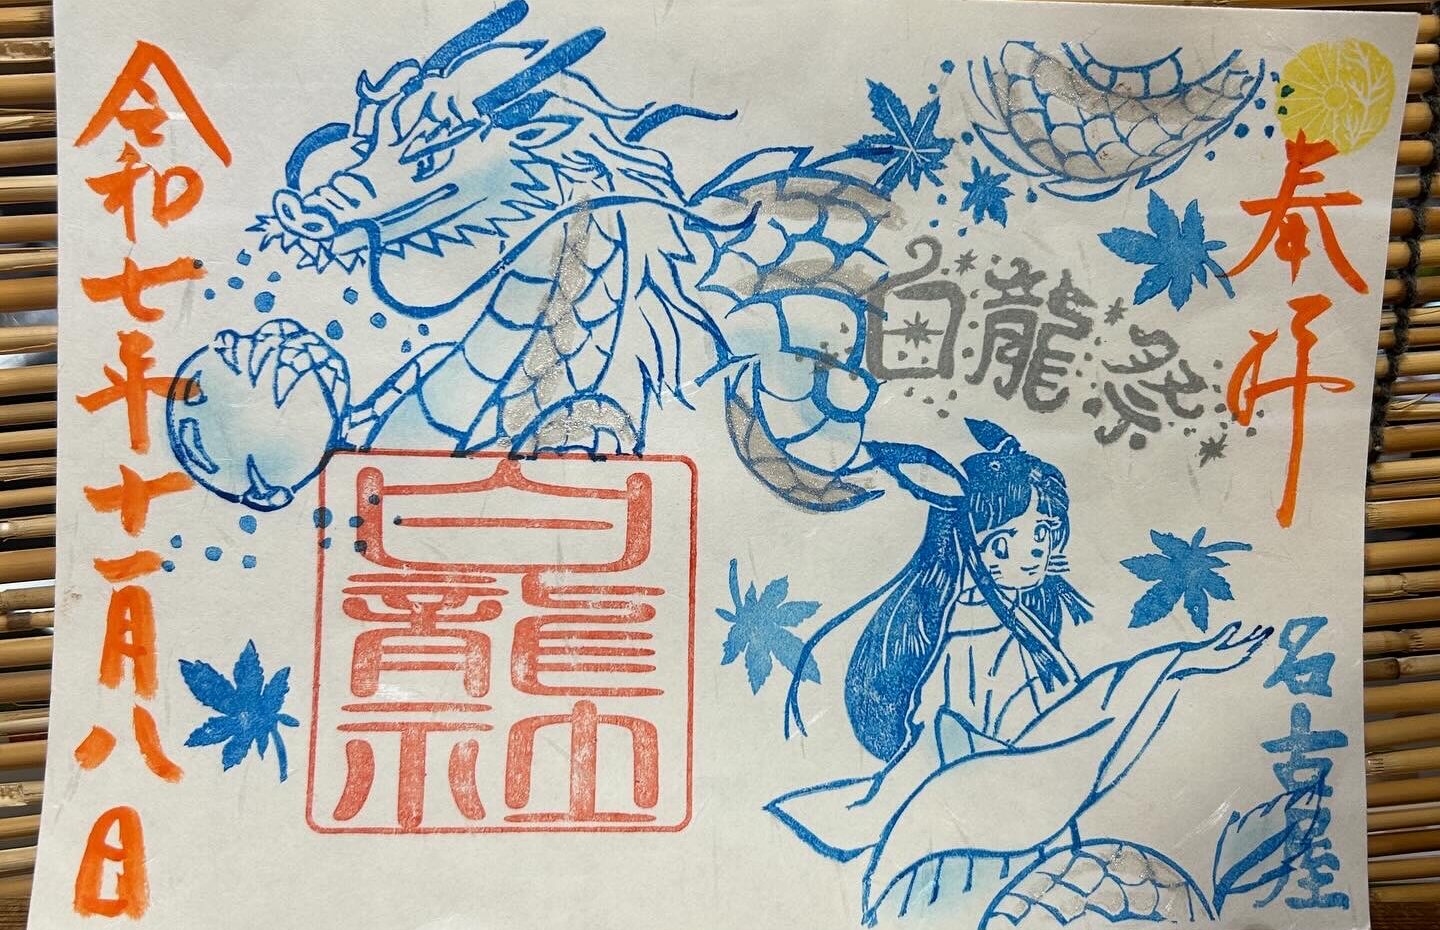 奉拝
名古屋
白龍祭
白龍社
令和七年十一月八日